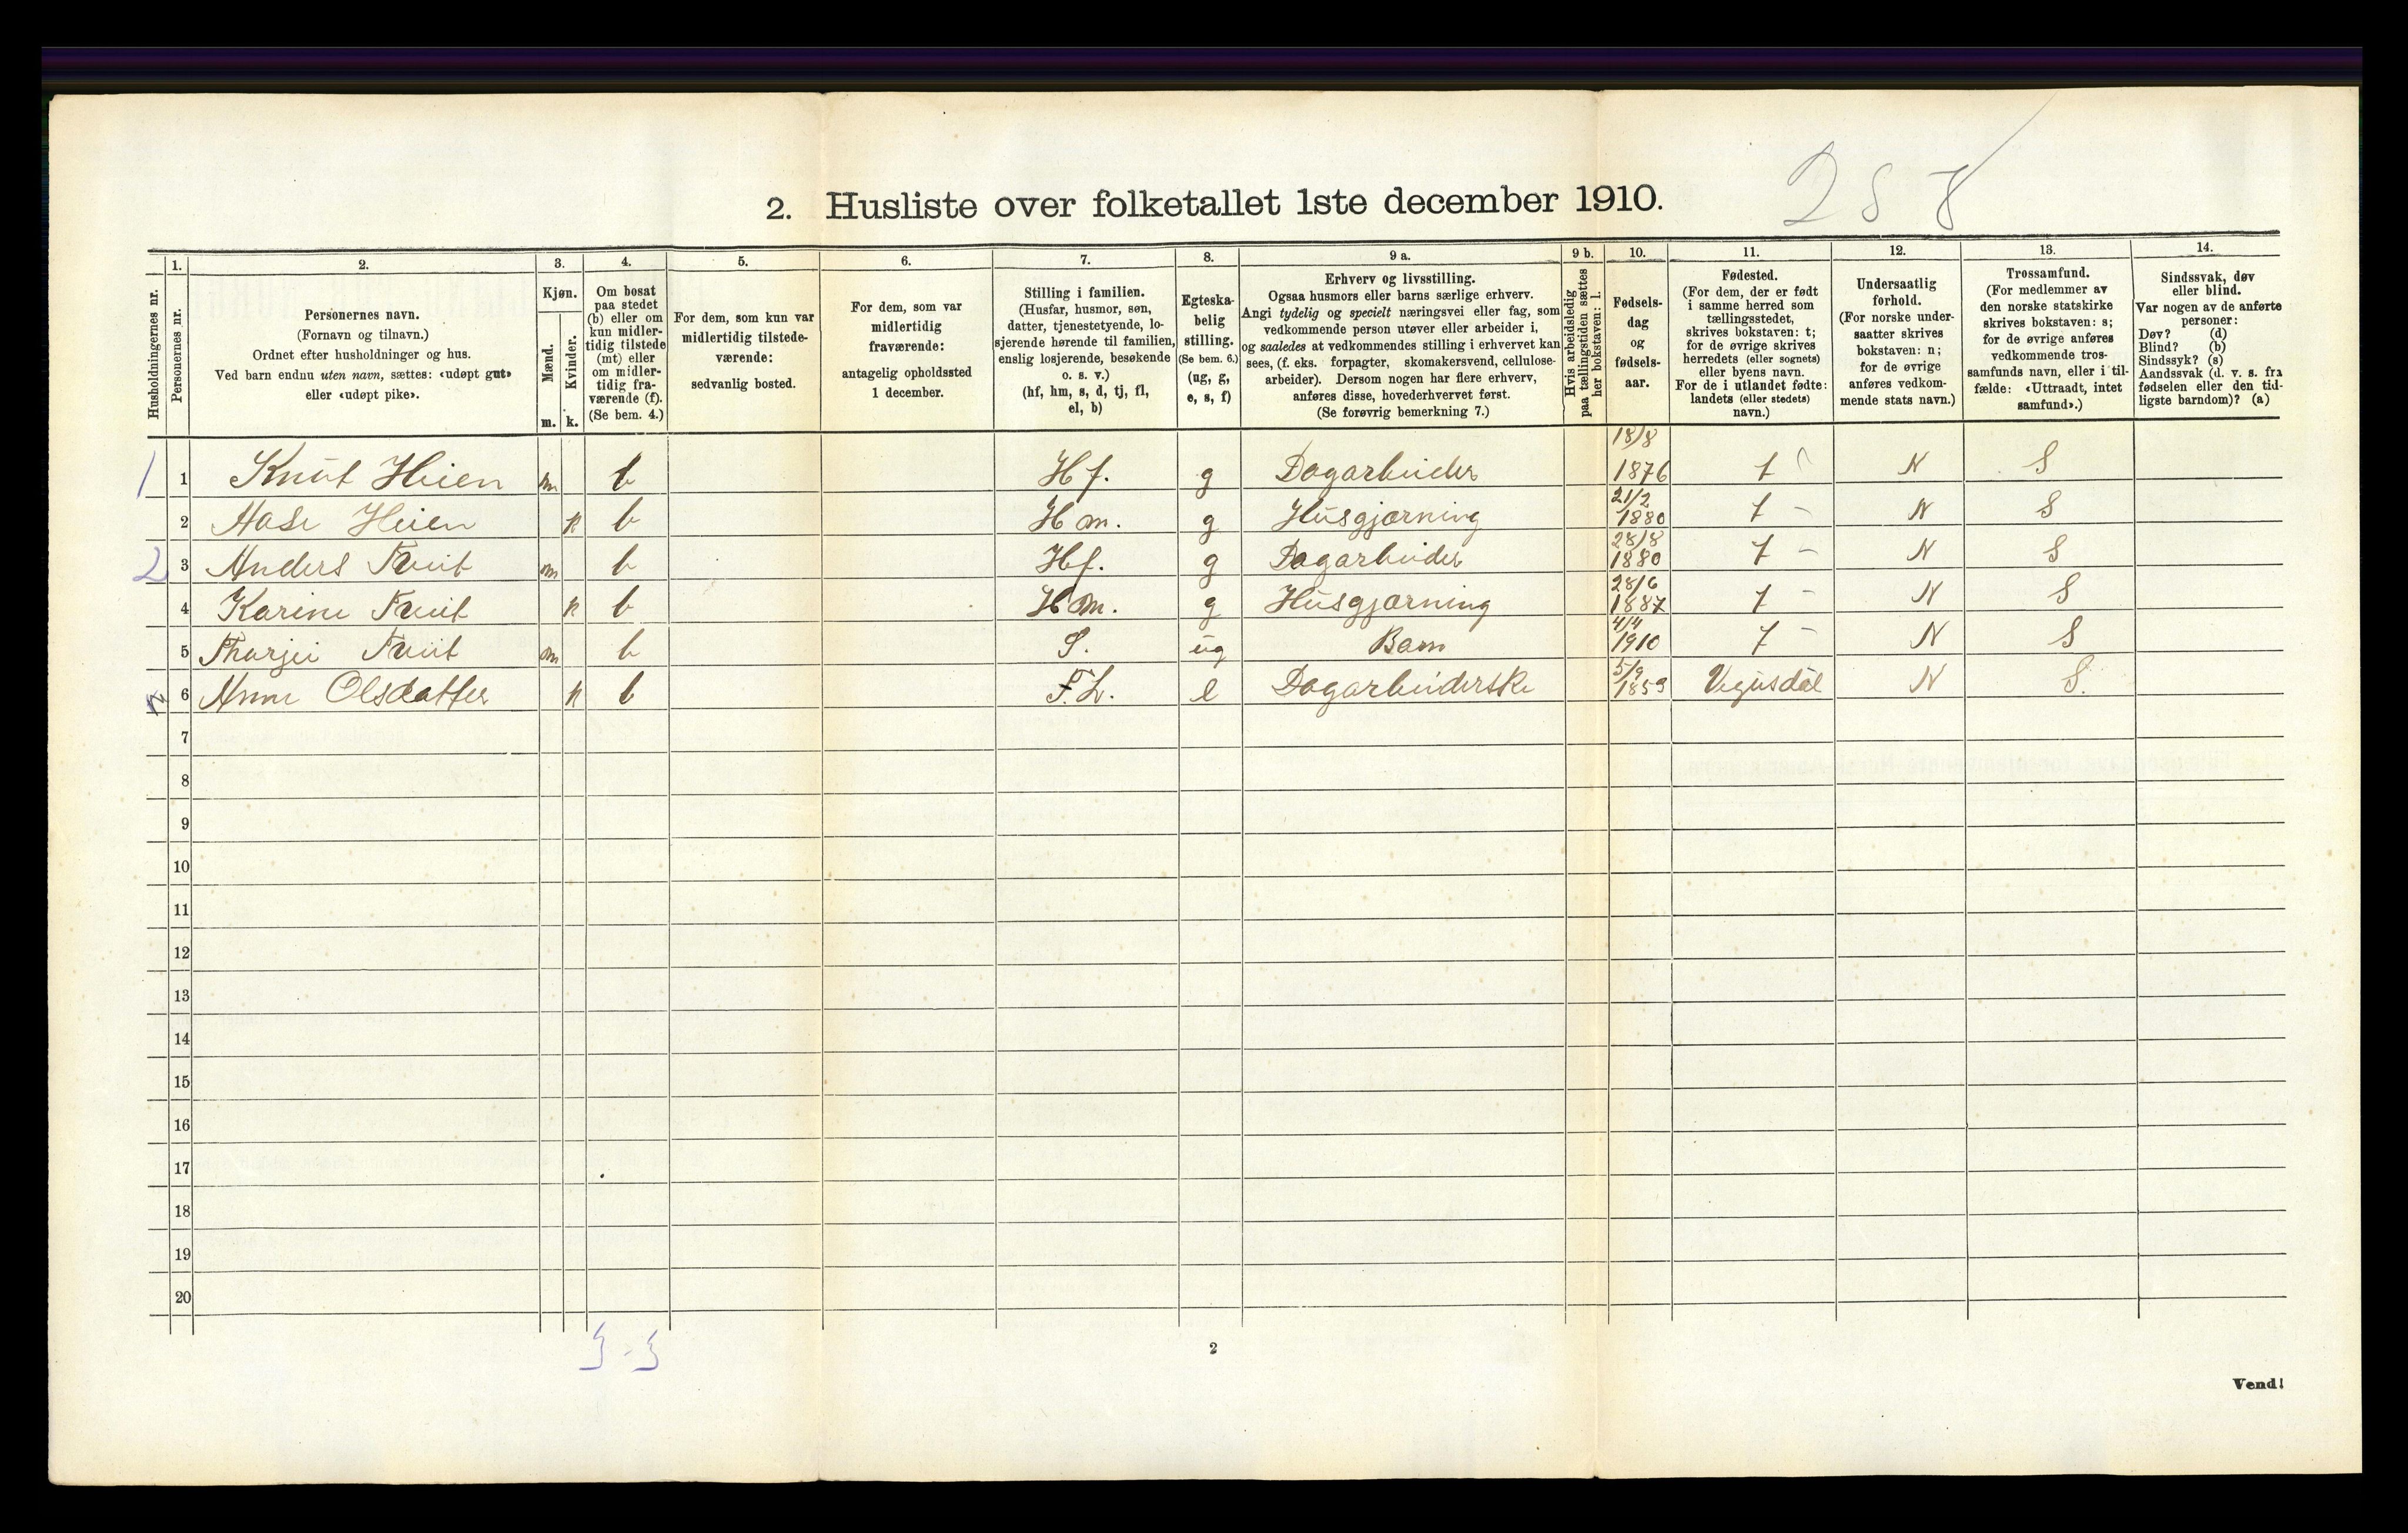 288
2. Husliste over folketallet 1ste december 1910.
Husholdningernes nr.
1. Personernes nr.
2. Personernes navn. (Fornavn og tilnavn.) Ordnet efter husholdninger og hus. Ved barn endnu uten navn, sættes: «udøpt gut» eller «udøpt pike».
3. Kjøn. Mænd. m. Kvinder. k.
4. Om bosat paa stedet (b) eller om kun midlertidig tilstede (mt) eller om midlertidig fraværende (f). (Se bem. 4.)
5. For dem, som kun var midlertidig tilstedeværende: sedvanlig bosted.
6. For dem, som var midlertidig fraværende: antagelig opholdssted 1 december.
7. Stilling i familien. (Husfar, husmor, søn, datter, tjenestetyende, losjerende hørende til familien, enslig losjerende, besøkende o. s. v.) (hf, hm, s, d, tj, fl, el, b)
8. Egteskabelig stilling. (Se bem. 6.) (ug, g, e, s, f)
9 a. Erhverv og livsstilling. Ogsaa husmors eller barns særlige erhverv. Angi tydelig og specielt næringsvei eller fag, som vedkommende person utøver eller arbeider i, og saaledes at vedkommendes stilling i erhvervet kan sees, (f. eks. forpagter, skomakersvend, cellulosearbeider). Dersom nogen har flere erhverv, anføres disse, hovederhvervet først. (Se forøvrig bemerkning 7.)
9 b. Hvis arbeidsledig paa tællingstiden sættes her bokstaven: l.
10. Fødselsdag og fødselsaar.
11. Fødested. (For dem, der er født i samme herred som tællingsstedet, skrives bokstaven: t; for de øvrige skrives herredets (eller sognets) eller byens navn. For de i utlandet fødte: landets (eller stedets) navn.)
12. Undersaatlig forhold. (For norske undersaatter skrives bokstaven: n; for de øvrige anføres vedkommende stats navn.)
13. Trossamfund. (For medlemmer av den norske statskirke skrives bokstaven: s; for de øvrige anføres vedkommende trossamfunds navn, eller i tilfælde: «Uttraadt, intet samfund».)
14. Sindssvak, døv eller blind. Var nogen av de anførte personer: Døv? (d) Blind? (b) Sindssyk? (s) Aandssvak (d. v. s. fra fødselen eller den tidligste barndom)? (a)
1 1 Knut Heien m b Hf. g Dagarbeider 18/8 1876 t N S
2 Aase Heien k b Hm. g Husgjærning 21/2 1880 t - N S
2 3 Anders Tveit m b Hf. g Dagarbeider 28/8 1880 t - N S
4 Karine Tveit k b Hm. g Husgjærning 28/6 1887 t - N S
5 Thorjei Tveit m b S. ug Barn 4/4 1910 t - N S
6 Anne Olsdatter k b F.L. e Dagarbeiderske 5/9 1859 Vegusdal N S.
7
8
9
10
11
12
13
14
15
16
17
18
19
20
3 - 3
2
Vend!